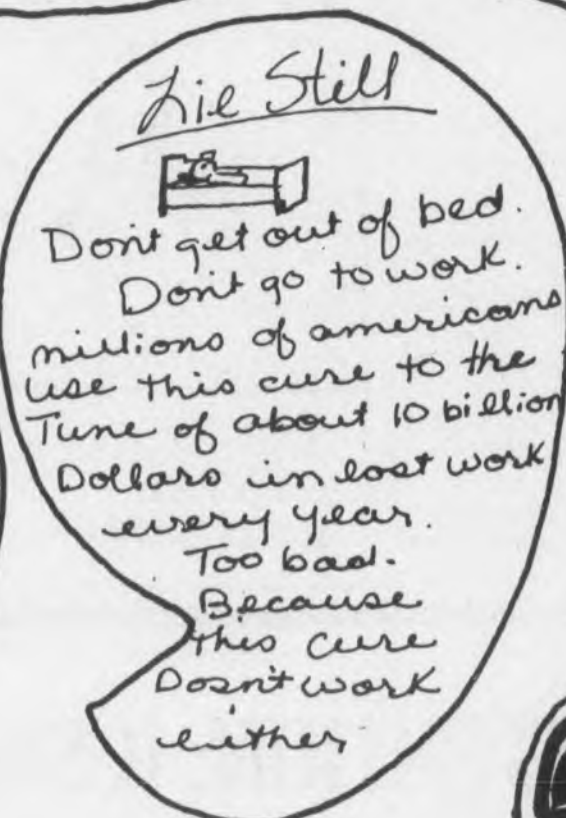 Lie Still
Don't get out of bed.
Don't go to work.
millions of americans
use this cure to the
Tune of about 10 billion
Dollars in lost work
every year.
Too bad.
Because
this cure
Dosn't work
either